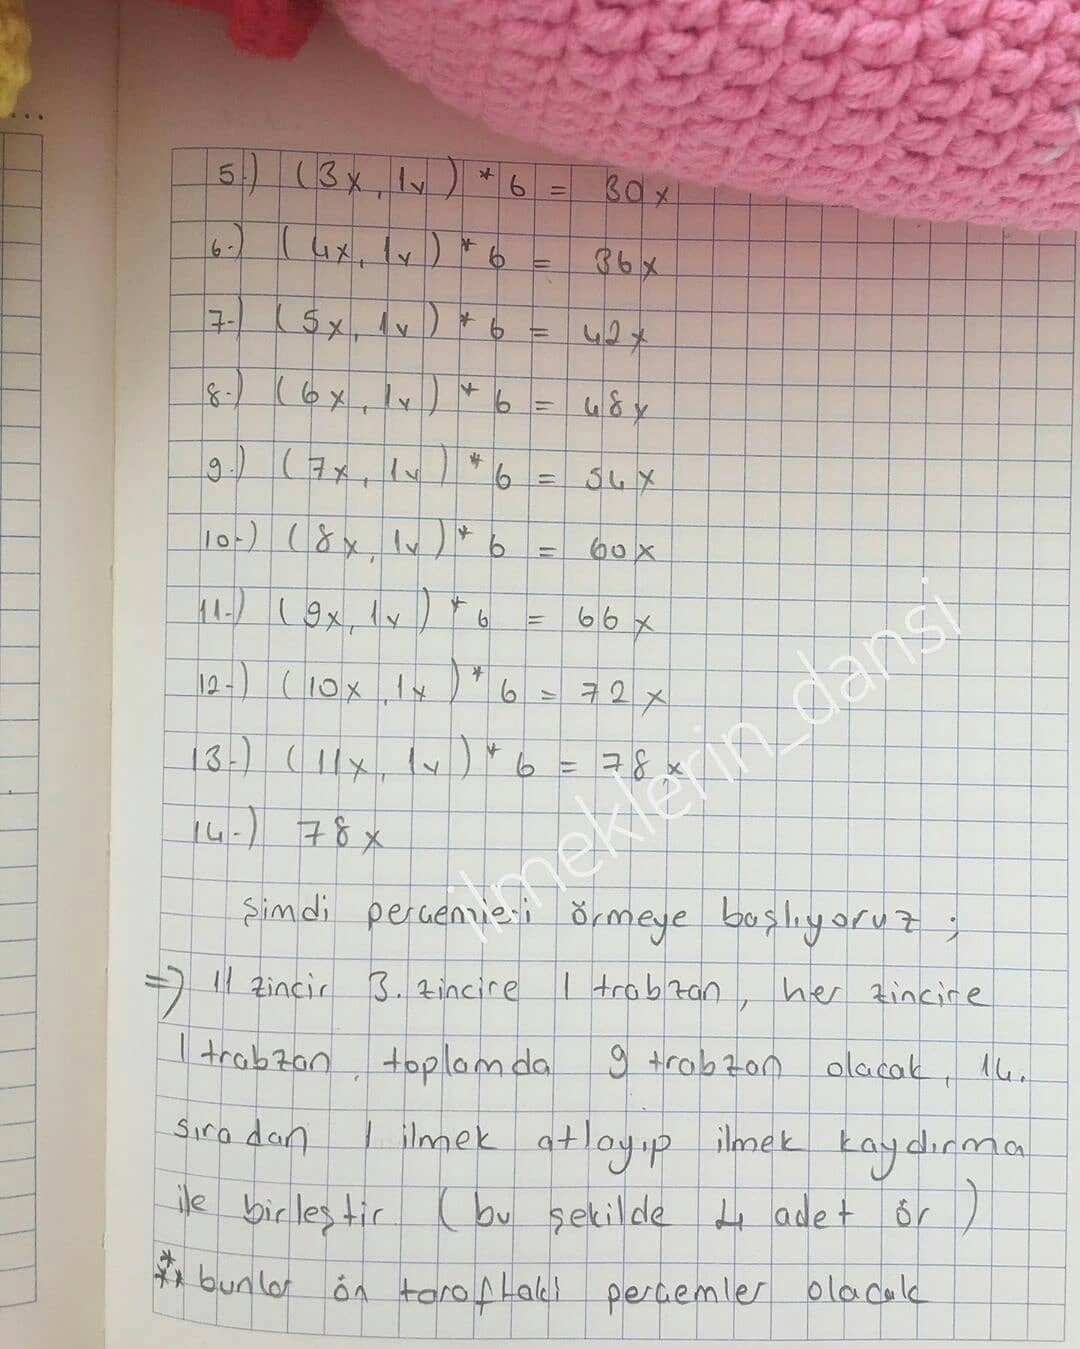 5-) (3x, 1v) * 6 = 30x
6-) (4x, 1v) * 6 = 36x
7-) (5x, 1v) * 6 = 42x
8-) (6x, 1v) * 6 = 48x
9-) (7x, 1v) * 6 = 54x
10-) (8x, 1v) * 6 = 60x
11-) (9x, 1v) * 6 = 66x
12-) (10x, 1v) * 6 = 72x
13-) (11x, 1v) * 6 = 78x
14-) 78x
ilmeklerin_dansi
Şimdi perçemleri örmeye başlıyoruz ;
=> 11 zincir 3. zincire 1 trabzan, her zincire
1 trabzan, toplamda 9 trabzan olacak, 14.
sıradan 1 ilmek atlayıp ilmek kaydırma
ile birleştir (bu şekilde 4 adet ör)
*** bunlar ön taraftaki perçemler olacak